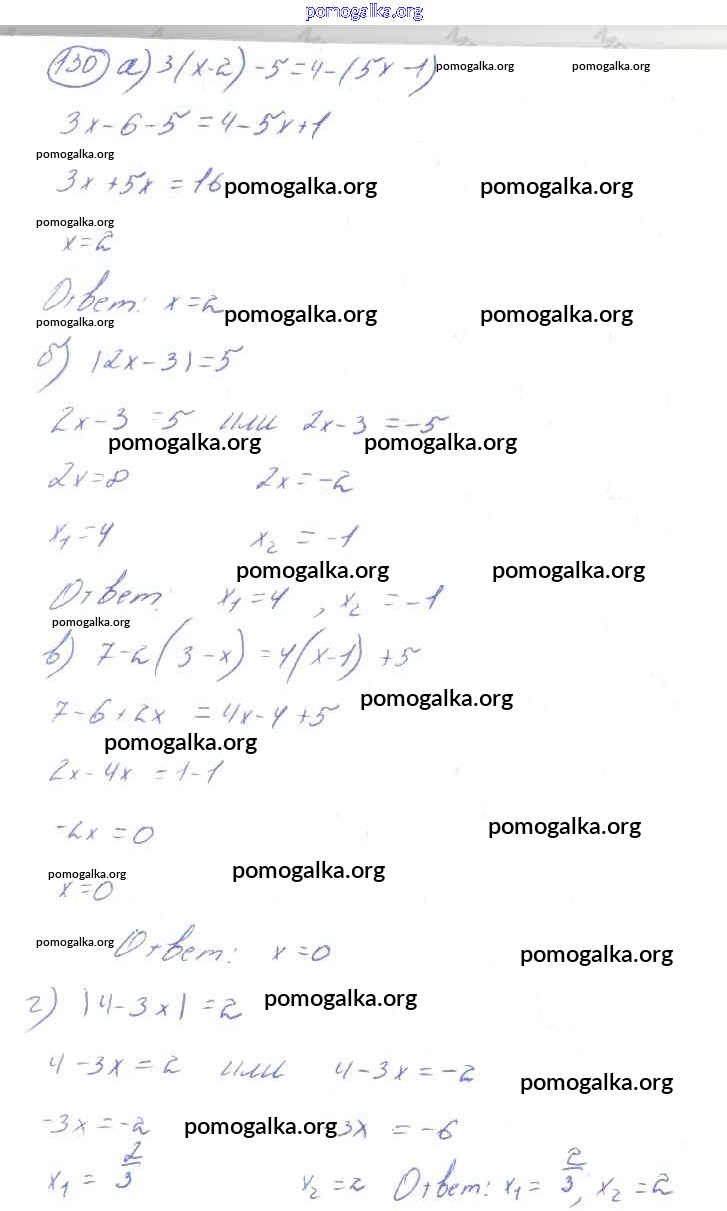 pomogalka.org
130 а) 3(x-2) -5 = 4-(5x-1) pomogalka.org pomogalka.org
3x-6-5 = 4-5x+1
pomogalka.org
3x+5x = 16 pomogalka.org pomogalka.org
pomogalka.org
x=2
Ответ: x=2 pomogalka.org pomogalka.org
pomogalka.org
б) |2x-3|=5
2x-3 =5 или 2x-3 =-5
pomogalka.org pomogalka.org
2x=8 2x=-2
x₁=4 x₂ = -1
pomogalka.org pomogalka.org
Ответ: x₁=4 , x₂ = -1
pomogalka.org
в) 7-2(3-x)=4(x-1) +5
pomogalka.org
7-6+2x = 4x-4+5
pomogalka.org
2x-4x = 1-1
-2x = 0 pomogalka.org
pomogalka.org pomogalka.org
x=0
pomogalka.org Ответ: x=0 pomogalka.org
г) |4-3x| = 2 pomogalka.org
4-3x = 2 или 4-3x = -2
pomogalka.org
-3x = -2 pomogalka.org -3x = -6
x₁ = 2/3 x₂ = 2 Ответ: x₁ = 2/3, x₂ = 2